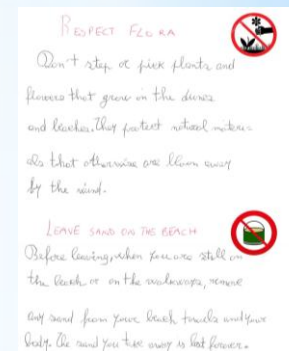 RESPECT FLORA
Don't step or pick plants and
flowers that grow in the dunes
and beaches. They protect natural materi-
als that otherwise are blown away
by the wind.
LEAVE SAND ON THE BEACH
Before leaving, when you are still on
the beach or on the walkways, remove
any sand from your beach towels and your
body. The sand you take away is lost forever.